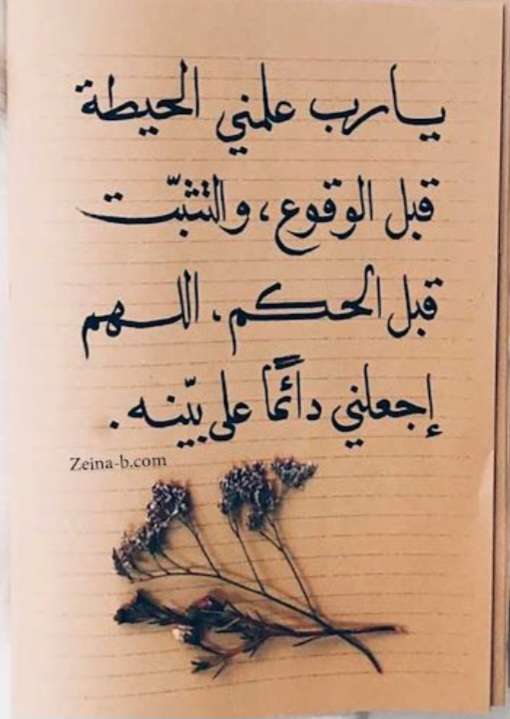 يارب علمني الحيطة
قبل الوقوع، والتثبّت
قبل الحكم. اللهم
إجعلني دائمًا على بيّنه.
Zeina-b.com